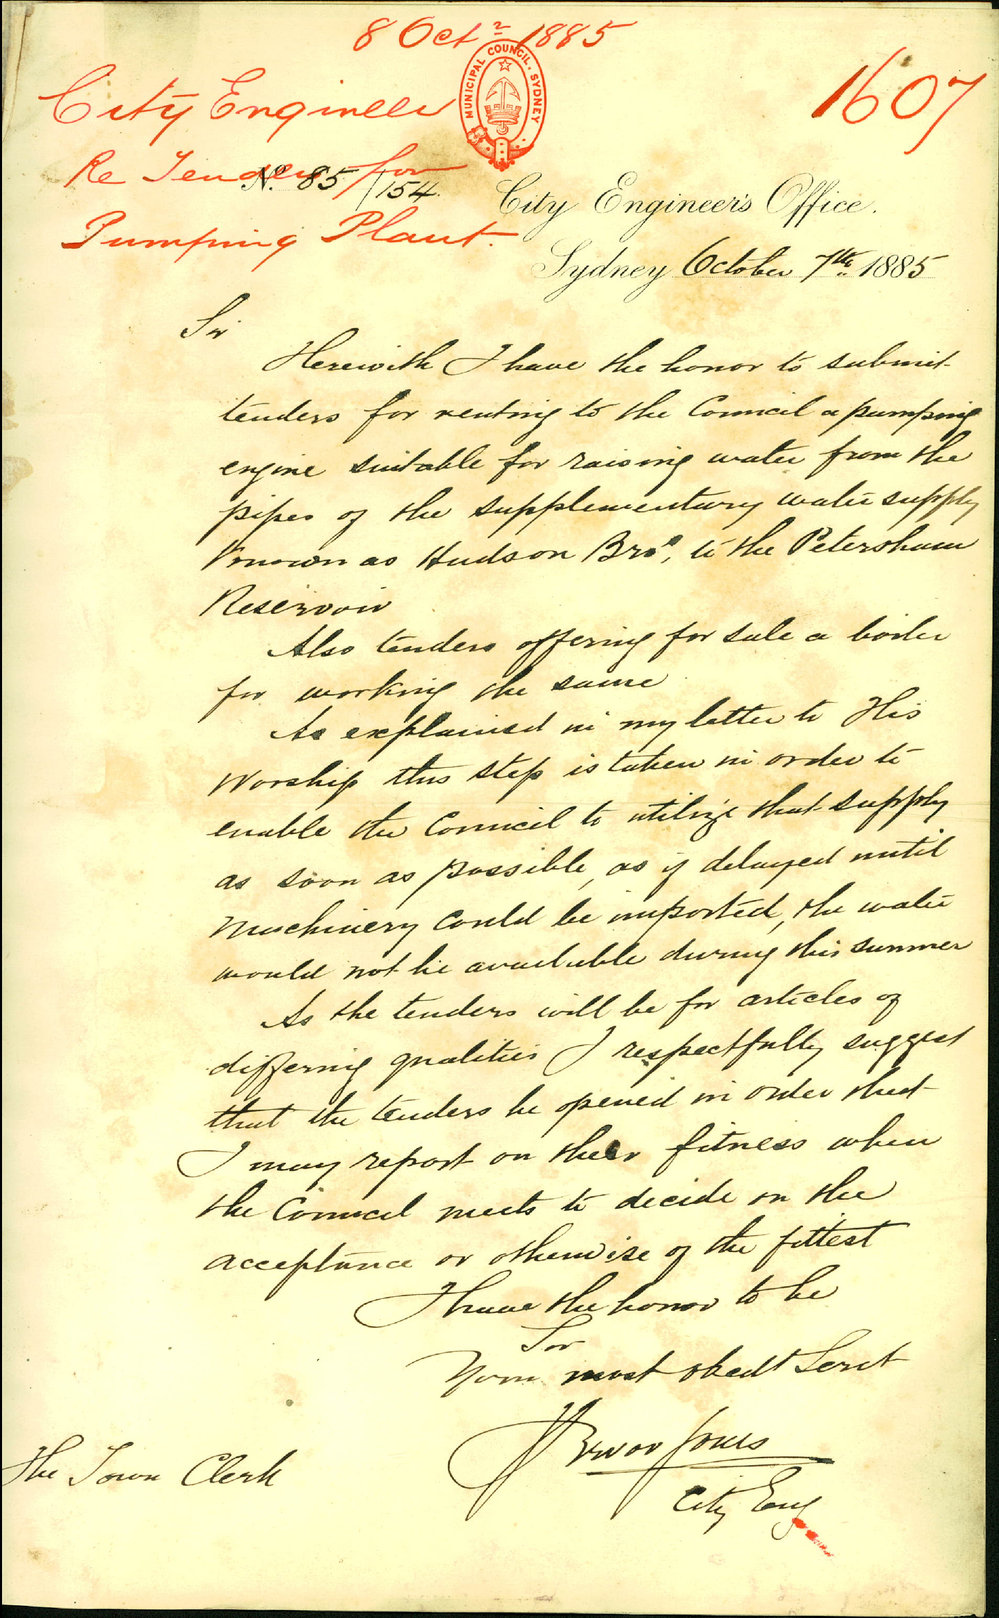 8 Octr 1885
MUNICIPAL COUNCIL, SYDNEY
1607
City Engineer
Re Tenders for
No. 85/154
Pumping Plant.
City Engineer's Office.
Sydney October 7th 1885
Sir
Herewith I have the honor to submit
tenders for renting to the Council a pumping
engine suitable for raising water from the
pipes of the supplementary water supply
known as Hudson Bros, to the Petersham
Reservoir
Also tenders offering for sale a boiler
for working the same
As explained in my letter to His
Worship this step is taken in order to
enable the Council to utilize that supply
as soon as possible, as if delayed until
machinery could be imported, the water
would not be available during this summer
As the tenders will be for articles of
differing qualities I respectfully suggest
that the tenders be opened in order that
I may report on their fitness when
the Council meets to decide on the
acceptance or otherwise of the fittest
I have the honor to be
Sir
Your most obedt Servt
Trevor Jones
City Eng
The Town Clerk